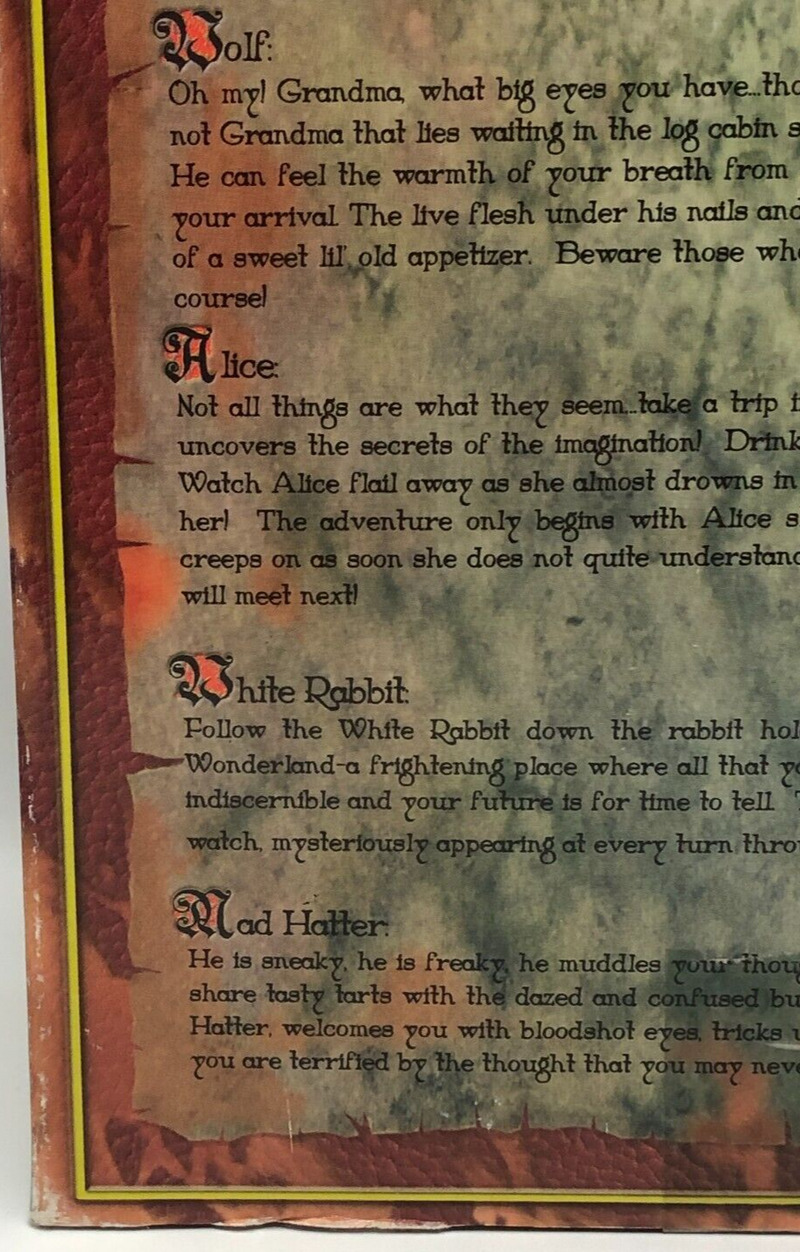 Wolf:
Oh my! Grandma, what big eyes you have...
not Grandma that lies waiting in the log cabin
He can feel the warmth of your breath from
your arrival. The live flesh under his nails and
of a sweet lil', old appetizer. Beware those
course!
Alice:
Not all things are what they seem...take a trip
uncovers the secrets of the imagination! Drink
Watch Alice flail away as she almost drowns in
her! The adventure only begins with Alice
creeps on as soon she does not quite understand
will meet next!
White Rabbit:
Follow the White Rabbit down the rabbit
Wonderland-a frightening place where all that
indiscernible and your future is for time to tell.
watch, mysteriously appearing at every turn
Mad Hatter:
He is sneaky, he is freaky, he muddles your
share tasty tarts with the dazed and confused
Hatter, welcomes you with bloodshot eyes, tricks
you are terrified by the thought that you may